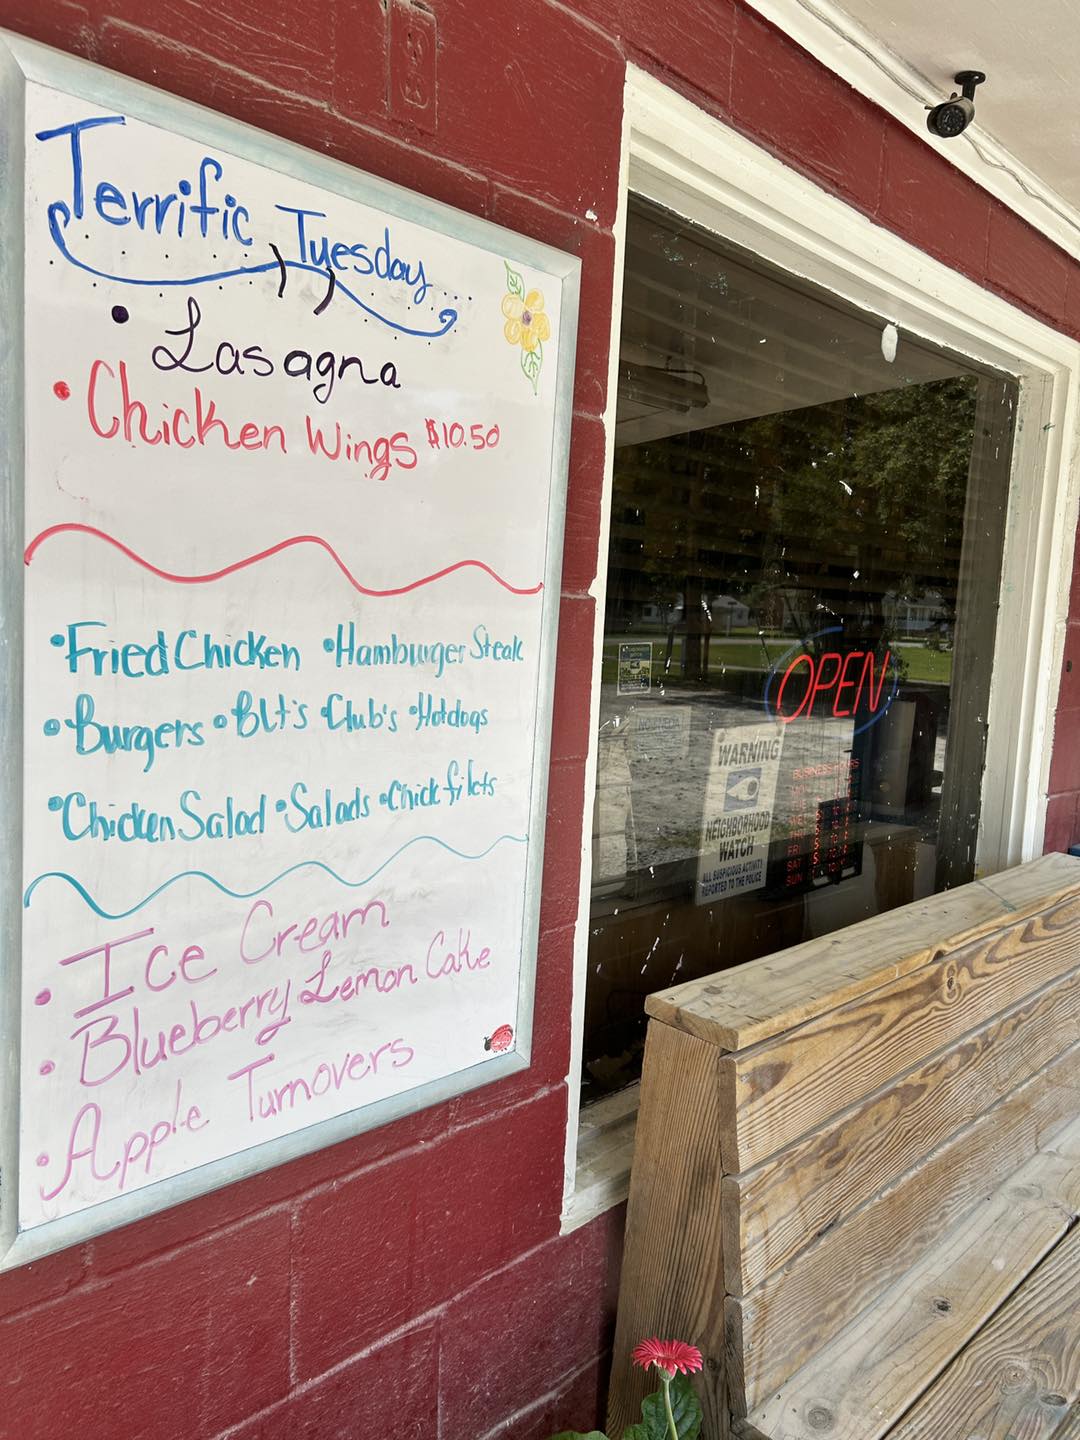 Terrific Tuesday
• Lasagna
• Chicken Wings $10.50
• Fried Chicken • Hamburger Steak
• Burgers • Blt's • Club's • Hotdogs
• Chicken Salad • Salads • Chick filets
• Ice Cream
• Blueberry Lemon Cake
• Apple Turnovers
OPEN
WARNING
NEIGHBORHOOD
WATCH
ALL SUSPICIOUS ACTIVITY
REPORTED TO THE POLICE
BUSINESS HOURS
FRI
SAT
SUN